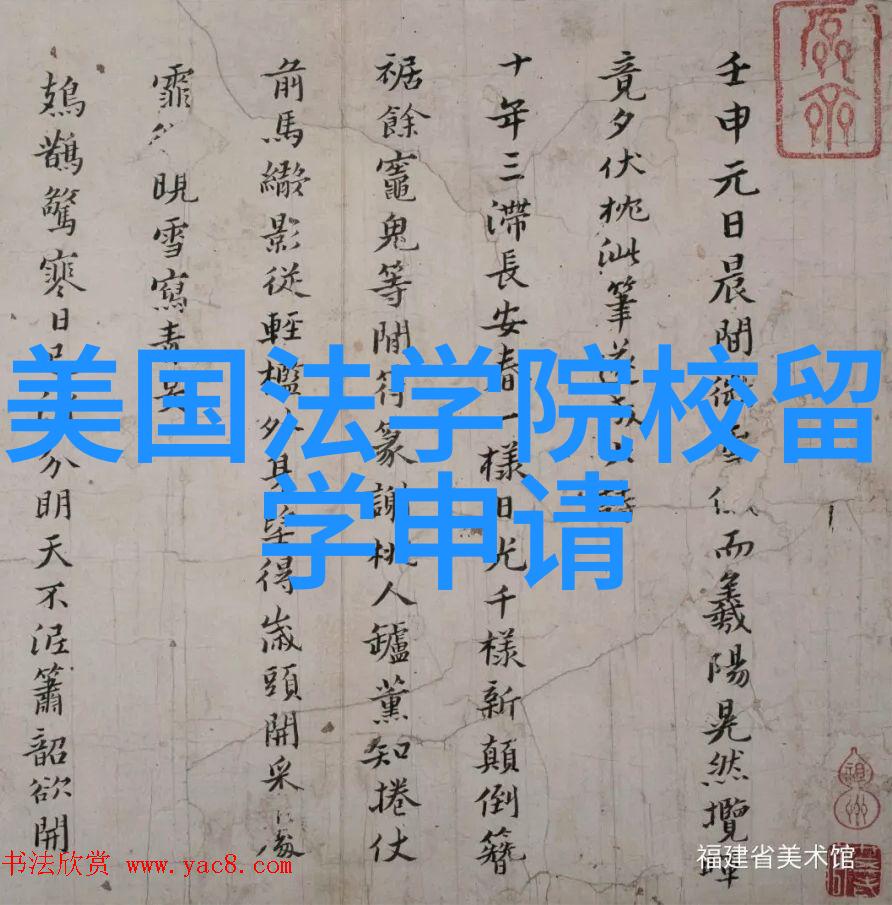 壬申元日晨間微而羲陽晃然攬
竟夕伏枕泚筆
十年三滯長安春一樣日光千樣新顛倒簪
裾餘竈鬼等閒符篆謝桃人鑪薰知捲仗
前馬繖影從輕檻外望得歲頭開采
霏晛雪寫青
鳷鵲驚寒日分明天不簫韶欲開
美国法学院校留
学申请
福建省美术馆
书法欣赏 www.yac8.com